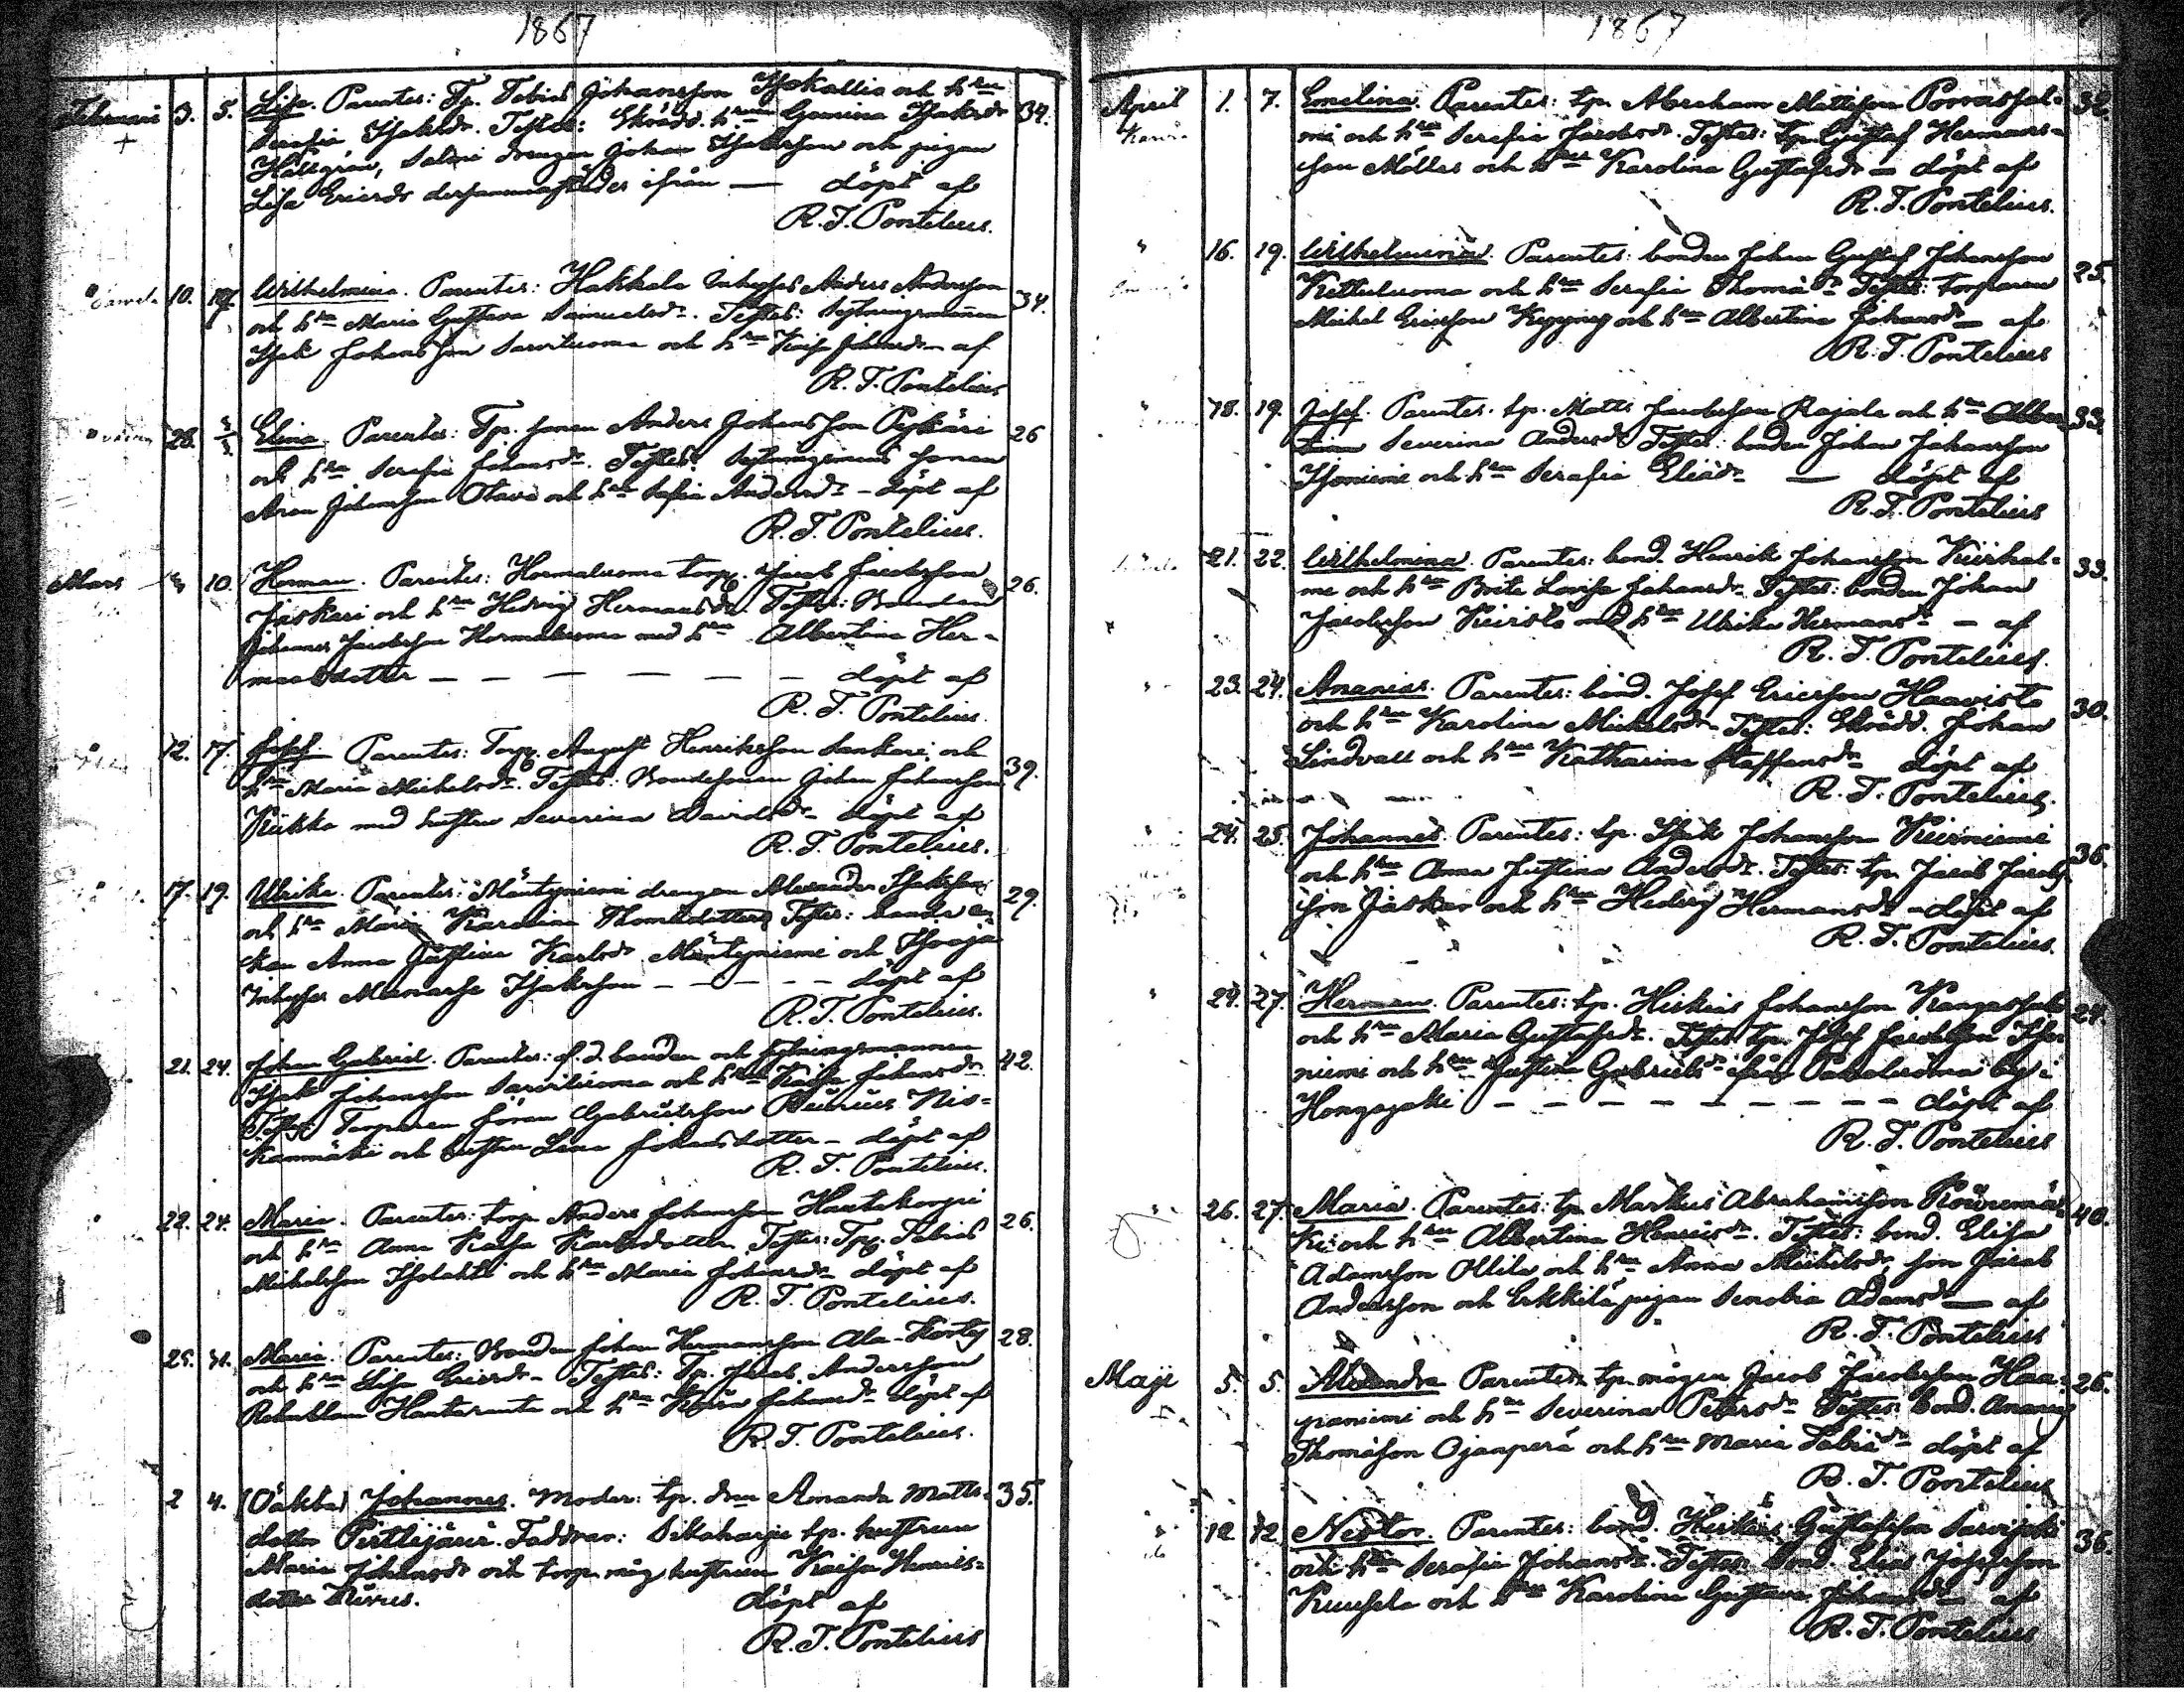 1867
Februari 3. 5. Lisa. Parentes: Tp. Tobias Johansson Isokallia och hru 34.
Serafia Isaksdr. Testes: Skrädd. hru Gemina Isaksdr
Hällgrén, Salmi drengen Johan Isaksson och pigan
Lisa Ericsdr dersammastädes ifrån — döpt af
R. T. Pontelius.
10. 17. Wilhelmina. Parentes: Hakkala Inhyses Anders Andersson 34.
och hru Maria Gustava Samuelsdr. Testes: Sexningsmannen
Isak Johansson Sarviluoma och hru Kaisa Johansdr — af
R. T. Pontelius
28. 3/3. Elina. Parentes: Tp. sonen Anders Johansson Pykäri 26
och hru Serafia Johansdr. Testes: Sexningsmans sonen
Aron Johansson Otava och hru Sofia Andersdr — döpt af
R. T. Pontelius.
Mars 10. Herman. Parentes: Hormaluoma torp. Jacob Jacobsson 26.
Jaskari och hru Hedvig Hermansdr. Testes: Bonden
Johannes Jacobsson Hormaluoma med hru Albertina Her-
mansdotter — — — — — — döpt af
R. T. Pontelius.
12. 17. Josef. Parentes: Torp. August Henriksson Sankari och 39.
hru Maria Michelsdr. Testes: Bondesonen Johan Johansson
Kiikka med hustru Severina Davidsdr — döpt af
R. T. Pontelius.
17. 19. Ulrika. Parentes: Mäntyniemi drengen Alexander Isaksson 29.
och hru Maria Karolina Thomasdotter. Testes: bonde en-
kan Anna Justina Karlsdr Mäntyniemi och Isooja
Inhyses Manasse Isaksson — — — — döpt af
R. T. Pontelius.
21. 24. Johan Gabriel. Parentes: f. d. bonden och sexningsmannen 42.
Isak Johansson Sarviluoma och hru Kaisa Johansdr
Testes: Torparen Göran Gabrielsson Nis-
kanmäki och hustru Lena Johansdotter — döpt af
R. T. Pontelius.
22. 24. Maria. Parentes: torp. Anders Johansson Hautakorpi 26.
och hru Anna Kaisa Karlsdotter. Testes: Tp. Tobias
Michelsson Isolahti och hru Maria Johansdr — döpt af
R. T. Pontelius.
25. 31. Maria. Parentes: Bonden Johan Hermansson Ala-Korty 28.
och hru Lisa Ericsdr — Testes: Tp. Jacob Andersson
Hautaranta och hru Johansdr döpt af
R. T. Pontelius.
2 4. (Oäkta) Johannes. Moder: tp. drn Amanda Matts- 35.
dotter Pittkjärvi. Faddrar: tp. hustrun
Maria Johansdr och torp. måg hustrun Kaisa Henriks-
dotter Kivves. döpt af
R. T. Pontelius
1867
April 1. 7. Emelina. Parentes: tp. Abraham Mattsson Porrassal- 32.
mi och hru Serafia Jacobsdr. Testes: tp. Gustaf Hermans-
son Möller och hru Karolina Gustafsdr — döpt af
R. T. Pontelius.
" 16. 19. Wilhelmina. Parentes: bonden Johan Gustaf Johansson 25.
Kettuluoma och hru Serafia Thomasdr. Testes: torparen
Michel Ericsson Kyyny och hru Albertina Johansdr — af
R. T. Pontelius
18. 19. Josef. Parentes: tp. Matts Jacobsson Rajala och hru Alber 33.
tina Severina Andersdr Testes: bonden Johan Johansson
Isoniemi och hru Serafia Eliasdr — döpt af
R. T. Pontelius
21. 22. Wilhelmina. Parentes: bond. Henrik Johansson 33.
och hru Brita Lovisa Johansdr. Testes: bonden Johan
Jacobsson och hru Ulrika Hermansdr — af
R. T. Pontelius.
" 23. 24. Ananias. Parentes: bond. Josef Ericsson Haavisto 30.
och hru Karolina Michelsdr — Testes: Skrädd. Johan
Lindvall och hru Katharina Staffansdr döpt af
R. T. Pontelius.
" 24. 25. Johannes. Parentes: tp. Isak Johansson Kiviniemi 36.
och hru Anna Justina Andersdr. Testes: tp. Jacob Jacobs-
son Jaskar och hru Hedvig Hermansdr — döpt af
R. T. Pontelius.
" 24. 27. Herman. Parentes: tp. Hiskias Johansson Kangassalo 24.
och hru Maria Gustafsdr. Testes: tp. Josef Jacobsson Iso-
niemi och hru Justina Gabrielsdr ifrån Panelinoma by i
Hongojoki — — — — — — — — döpt af
R. T. Pontelius
" 26. 27. Maria. Parentes: tp. Markus Abrahamsson Kouvemä- 40.
ki och hru Albertina Henricsdr. Testes: bond. Elisa
Adamsson Ollila och hru Anna Michelsdr, son Jacob
Andersson och Erkkilä pigan Senobia Adamsdr — af
R. T. Pontelius
Maji 5. 5. Alexandra Parentes: tp. mågen Jacob Jacobsson Haa- 26.
paniemi och hru Severina Petersdr Testes: bond. Ananias
Thomasson Ojanperä och hru Maria Tobiasdr — döpt af
R. T. Pontelius
" 12. 12. Nestor. Parentes: bond. Heskias Gustafsson Sarvijoki 36.
och hru Serafia Johansdr. Testes: bond. Elias Josefsson
Kuusela och hru Karolina Gustava Johansdr — af
R. T. Pontelius